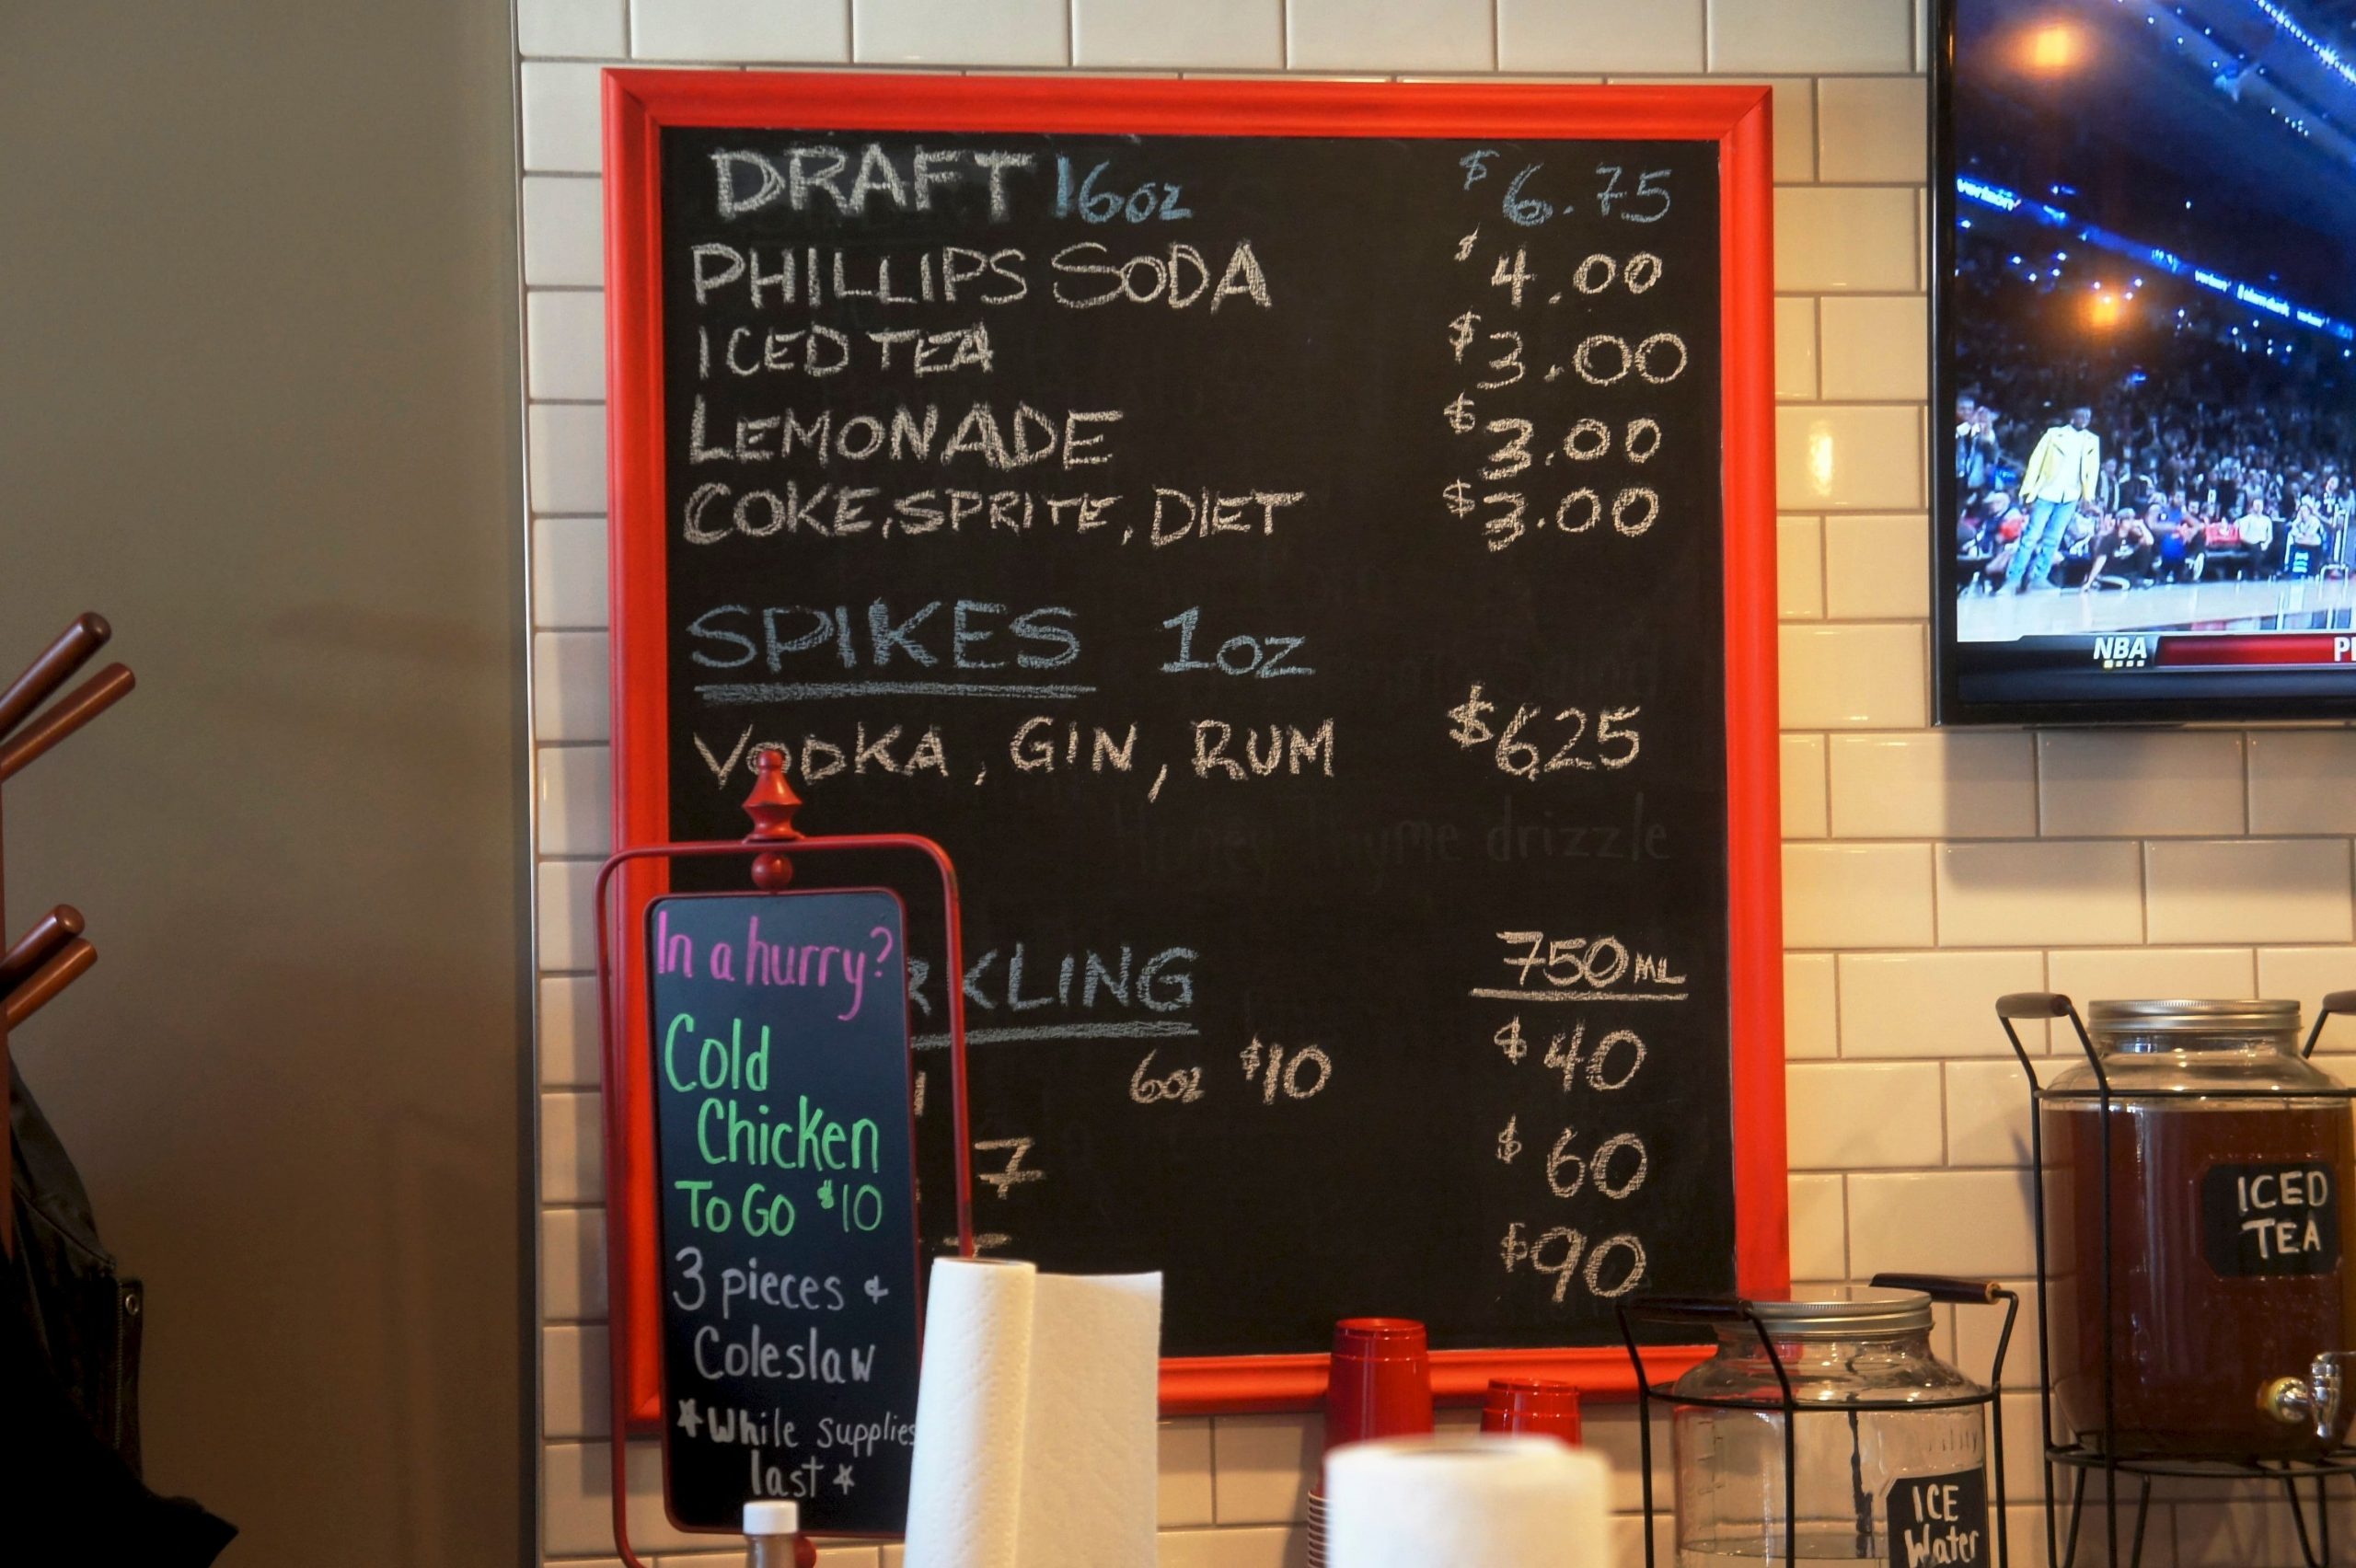 DRAFT 16oz $6.75
PHILLIPS SODA $4.00
ICED TEA $3.00
LEMONADE $3.00
COKE, SPRITE, DIET $3.00
SPIKES 1oz
VODKA, GIN, RUM $625
drizzle
RKLING 750ML
6oz $10 $40
7 $60
$90
In a hurry?
Cold
Chicken
To Go $10
3 pieces &
Coleslaw
*While supplies
last*
verizon
NBA
ICED
TEA
ICE
Water